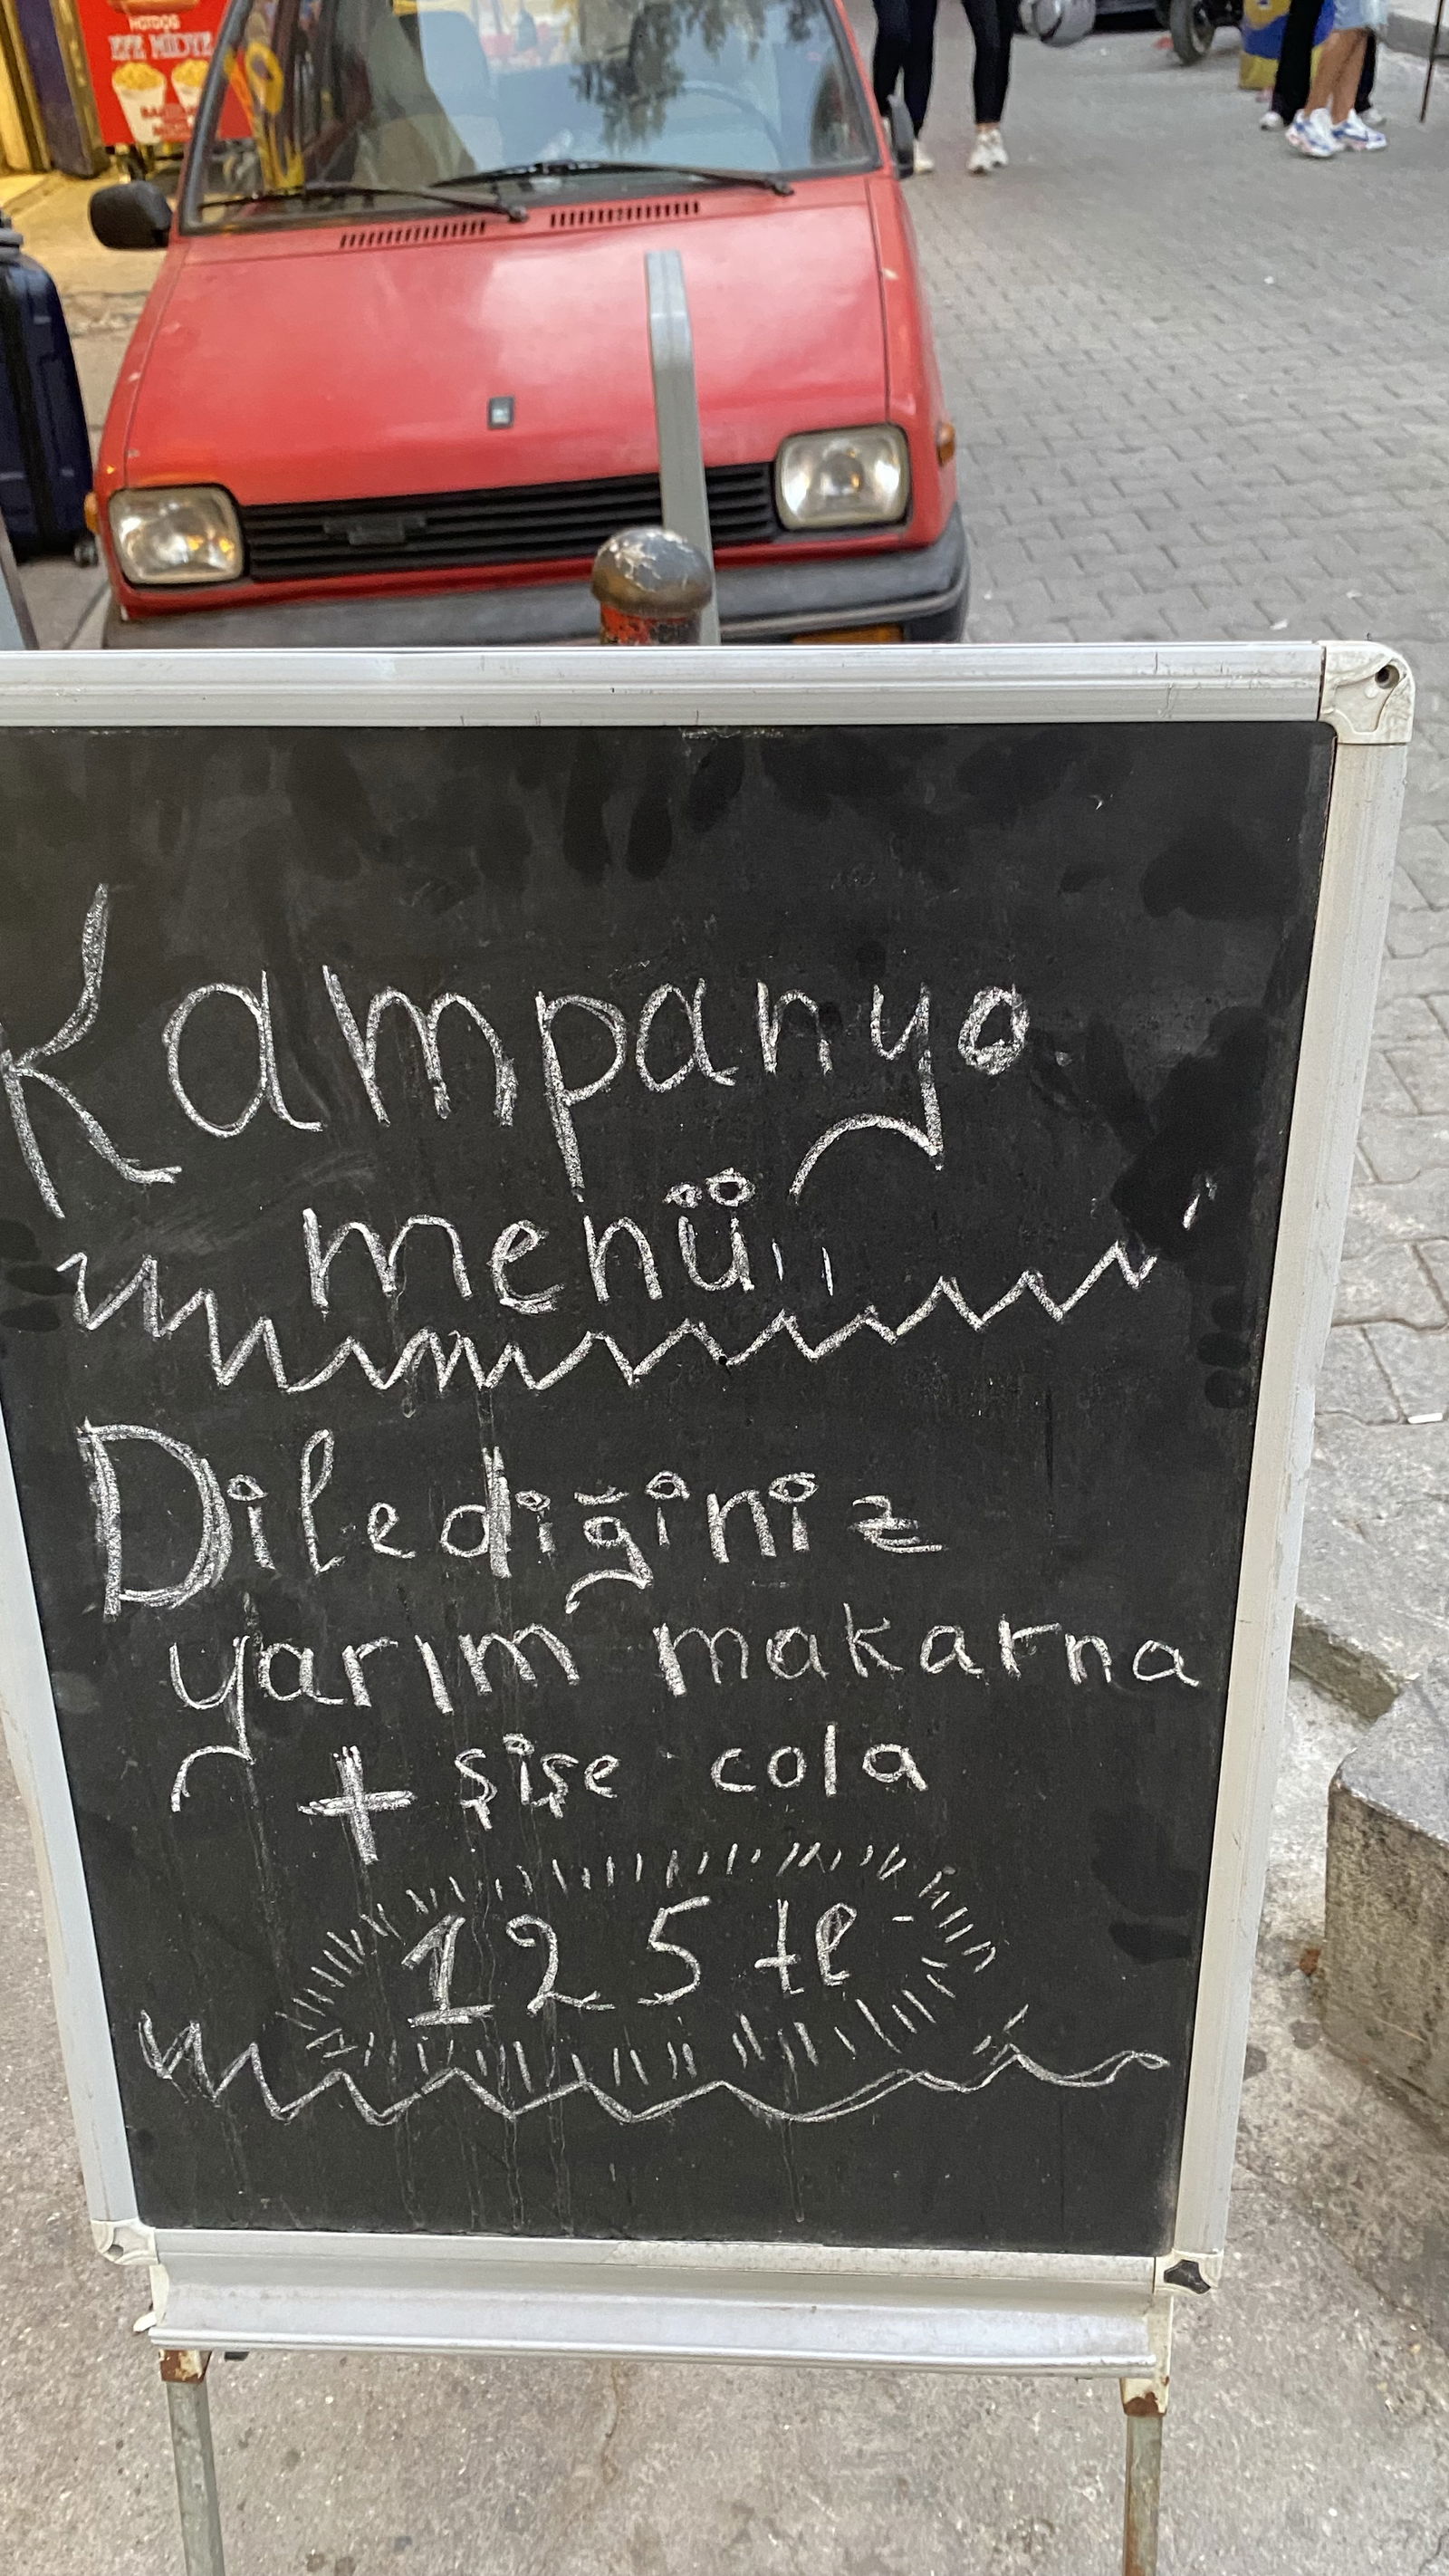 HOTDOG
EFE MİDYE
Kampanya
menü
Dilediğiniz
yarım makarna
+ şişe cola
125 tl